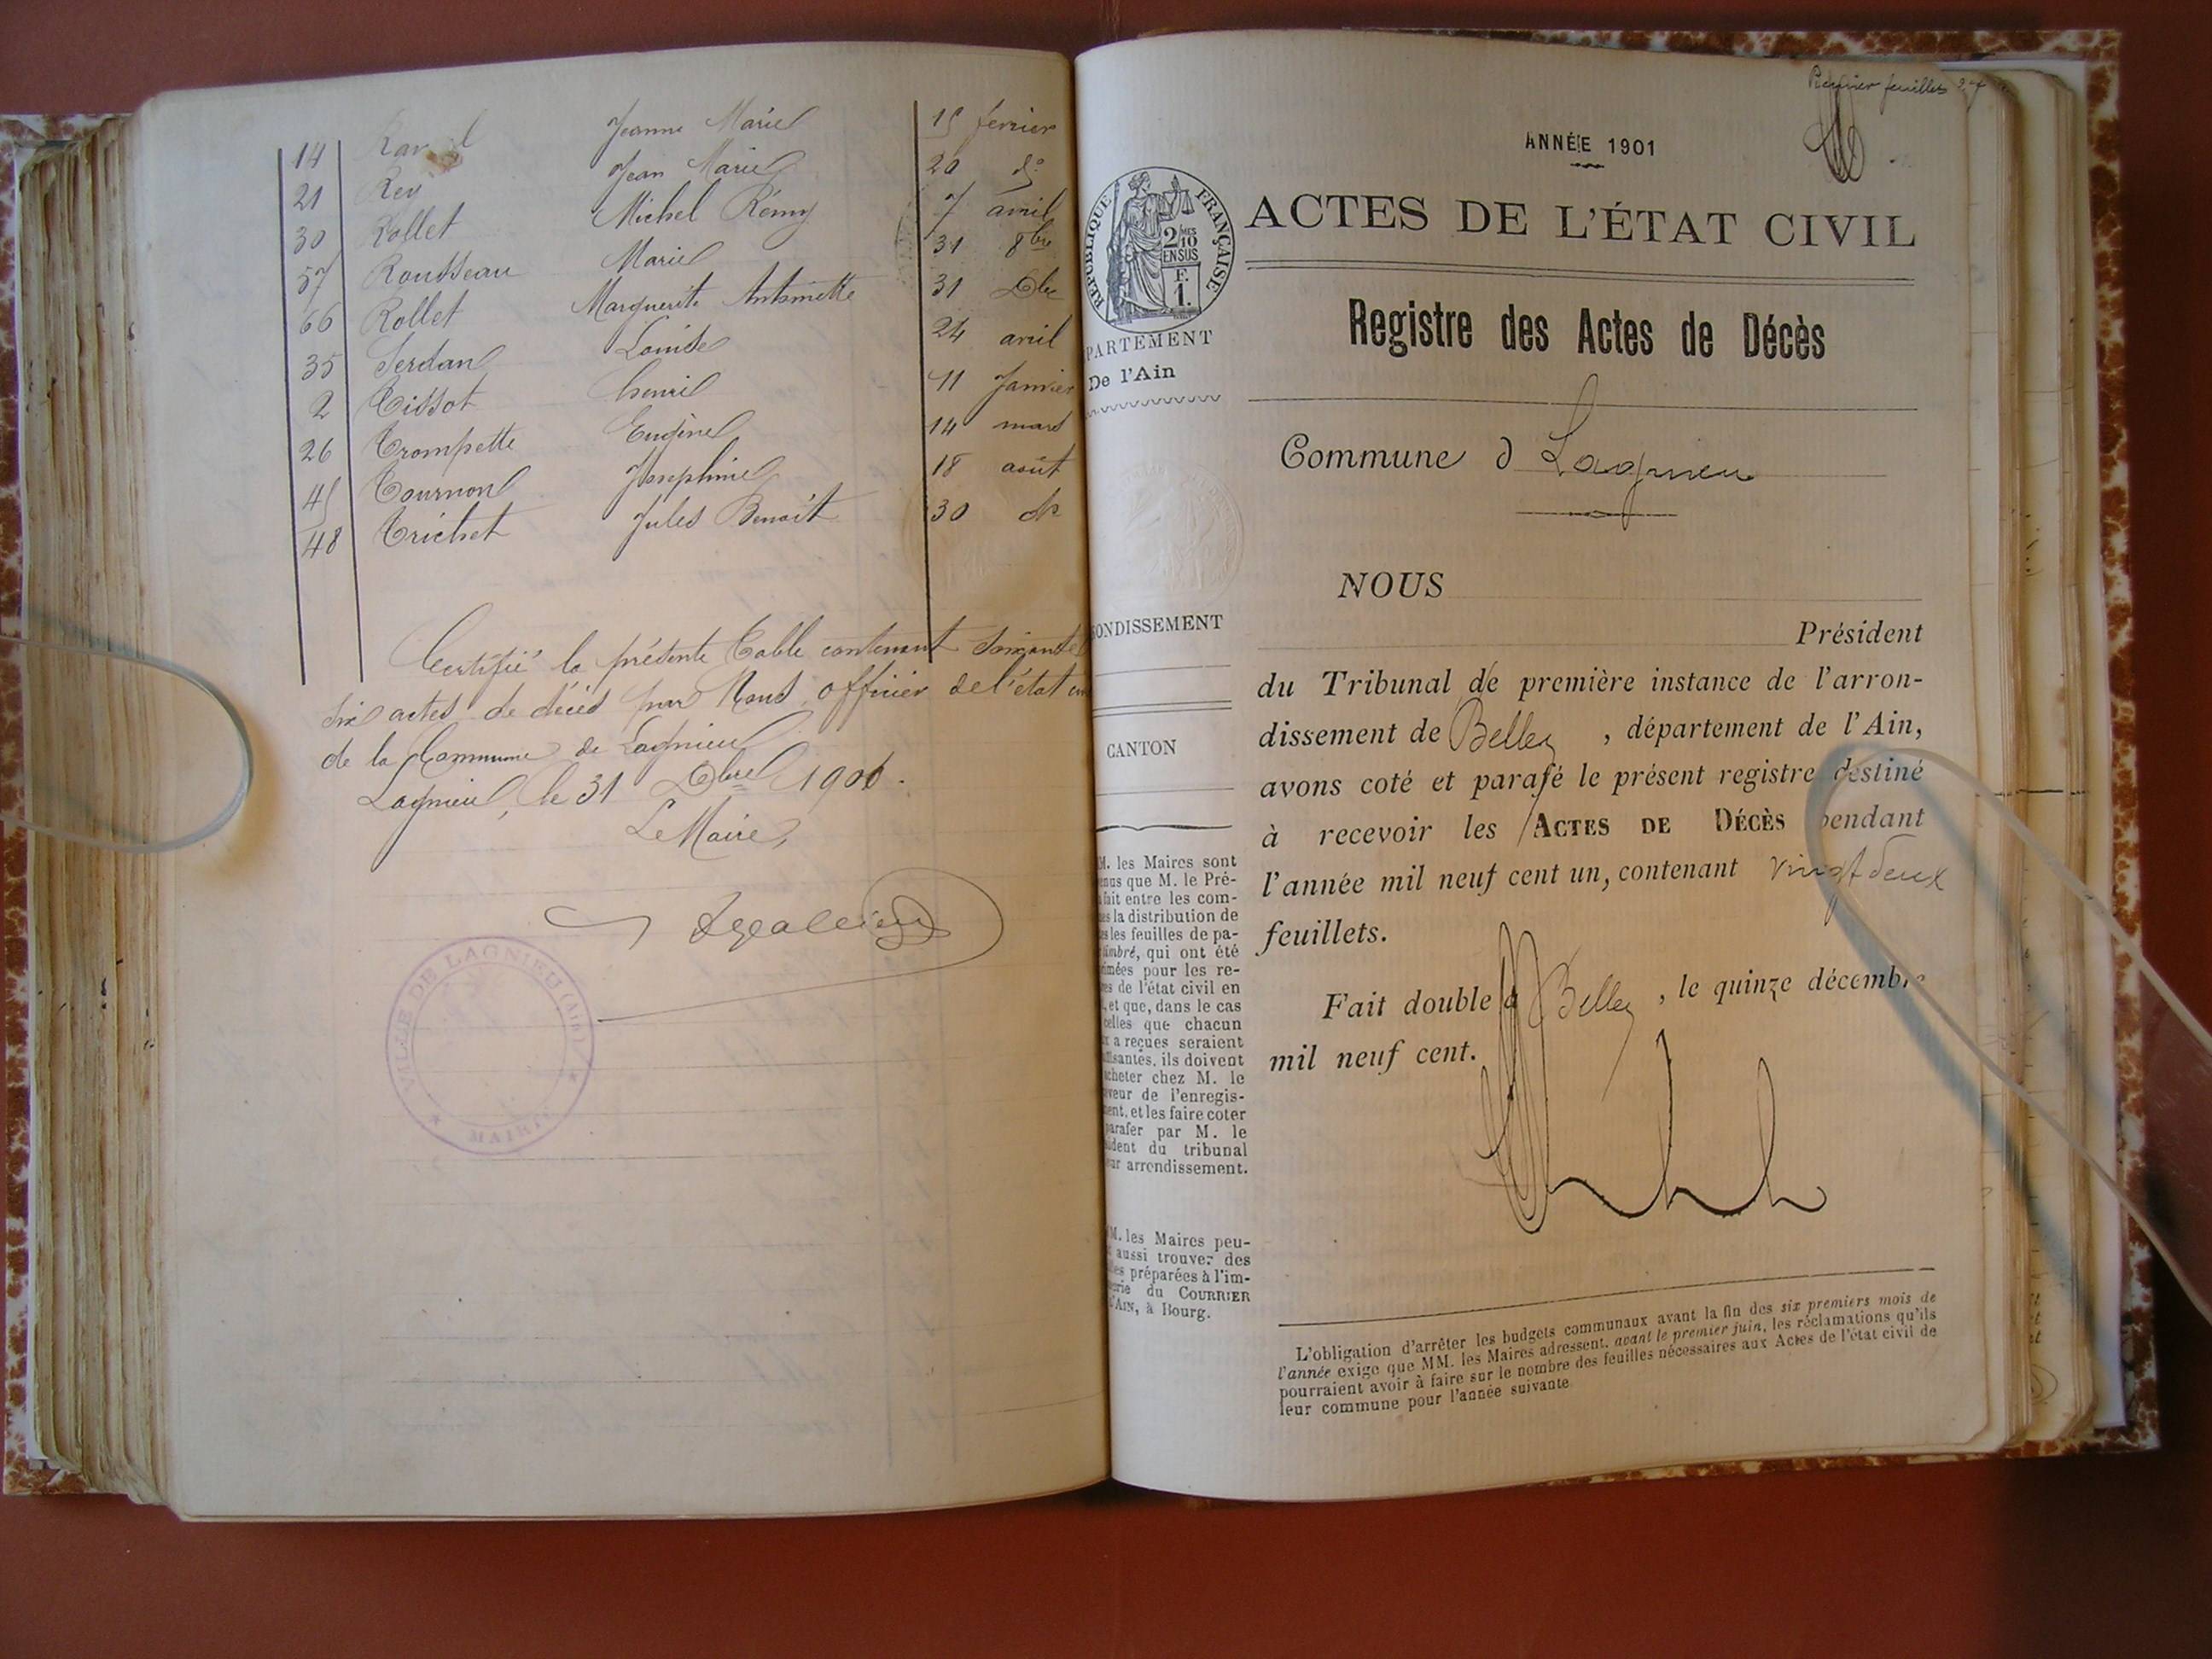 14 Jeanne Marie 15 février
21 Rey Jean Marie 20 do
30 Rollet Michel Rémy 7 avril
57 Rousseau Marie 31 8bre
66 Rollet Marguerite Antoinette 31 Xbre
35 Serdan Louise 24 avril
2 Tissot henri 11 Janvier
26 Trompette Eugène 14 mars
45 Tournon Josephine 18 août
48 Trichet Jules Benoît 30 do
Certifié la présente Table contenant soixante
six actes de décès par Nous officier de l'état
de la Commune de Lagnieu
Lagnieu, le 31 Xbre 1900.
Le Maire,
VILLE DE LAGNIEU (AIN)
MAIRIE
Premier feuillet
ANNÉE 1901
ACTES DE L'ÉTAT CIVIL
RÉPUBLIQUE FRANÇAISE
2/10 MES
EN SUS
F.
1.
PARTEMENT
De l'Ain
Registre des Actes de Décès
Commune d Lagnieu
NOUS
Président
du Tribunal de première instance de l'arron-
dissement de Belley, département de l'Ain,
avons coté et parafé le présent registre destiné
à recevoir les ACTES DE DÉCÈS pendant
l'année mil neuf cent un, contenant vingt deux
feuillets.
Fait double à Belley, le quinze décembre
mil neuf cent.
ONDISSEMENT
CANTON
M. les Maires sont
enus que M. le Pré-
fait entre les com-
es la distribution de
es les feuilles de pa-
timbré, qui ont été
imées pour les re-
es de l'état civil en
, et que, dans le cas
celles que chacun
x a reçues seraient
ffisantes, ils doivent
acheter chez M. le
eveur de l'enregis-
ent, et les faire coter
parafer par M. le
sident du tribunal
ur arrondissement.
MM. les Maires peu-
t aussi trouver des
les préparées à l'im-
erie du COURRIER
L'AIN, à Bourg.
L'obligation d'arrêter les budgets communaux avant la fin des six premiers mois de
l'année exige que MM. les Maires adressent, avant le premier juin, les réclamations qu'ils
pourraient avoir à faire sur le nombre des feuilles nécessaires aux Actes de l'état civil de
leur commune pour l'année suivante